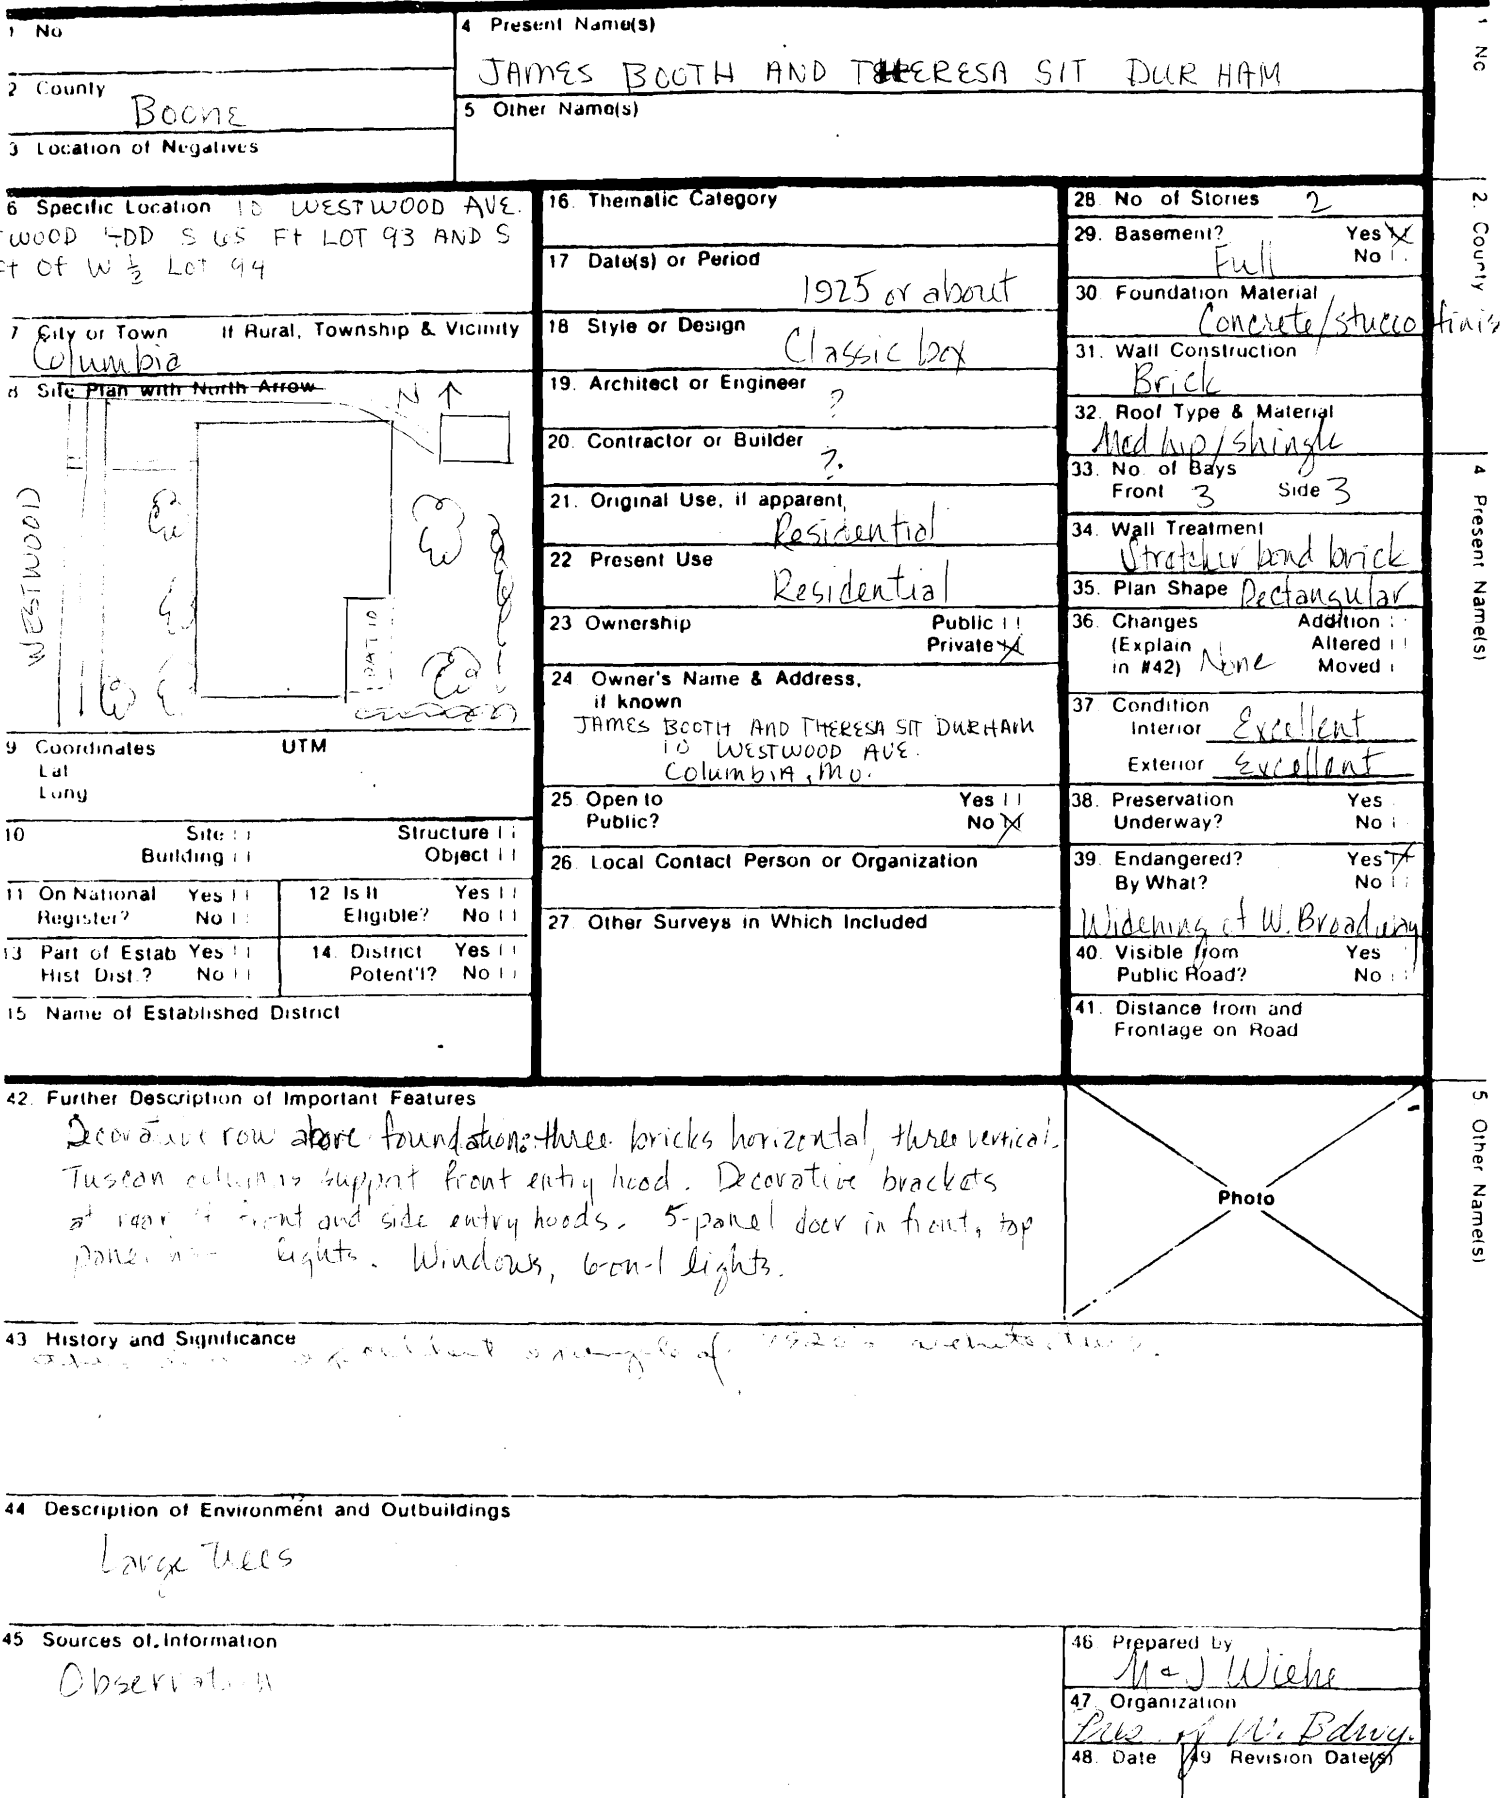 1 No
4 Present Name(s)
JAMES BOOTH AND THERESA SIT DURHAM
2 County
Boone
5 Other Name(s)
3 Location of Negatives
6 Specific Location 10 WESTWOOD AVE.
TWOOD ADD S 65 Ft LOT 93 AND S
Ft Of W 1/2 Lot 94
7 City or Town If Rural, Township & Vicinity
Columbia
8 Site Plan with North Arrow
N
WESTWOOD
9 Coordinates UTM
Lat
Long
10 Site Structure
Building Object
11 On National Register? Yes No
12 Is It Eligible? Yes No
13 Part of Estab Hist Dist.? Yes No
14. District Potent'l? Yes No
15 Name of Established District
16. Thematic Category
17 Date(s) or Period
1925 or about
18 Style or Design
Classic box
19. Architect or Engineer
?
20. Contractor or Builder
?
21. Original Use, if apparent
Residential
22 Present Use
Residential
23 Ownership Public
Private X
24. Owner's Name & Address,
if known
JAMES BOOTH AND THERESA SIT DURHAM
10 WESTWOOD AVE.
Columbia, Mo.
25. Open to Yes
Public? No X
26. Local Contact Person or Organization
27. Other Surveys in Which Included
28. No of Stories 2
29. Basement? Yes X
Full No
30. Foundation Material
Concrete/stucco finis
31. Wall Construction
Brick
32. Roof Type & Material
Med hip/shingle
33. No. of Bays
Front 3 Side 3
34. Wall Treatment
Stretcher bond brick
35. Plan Shape Rectangular
36. Changes Addition
(Explain Altered
in #42) None Moved
37. Condition
Interior Excellent
Exterior Excellent
38. Preservation Yes
Underway? No
39. Endangered? Yes X
By What? No
Widening of W. Broadway
40. Visible from Yes
Public Road? No
41. Distance from and
Frontage on Road
42. Further Description of Important Features
Decorative row above foundation: three bricks horizontal, three vertical.
Tuscan columns support front entry hood. Decorative brackets
at rear of front and side entry hoods. 5-panel door in front, top
lights. Windows, 6-on-1 lights.
Photo
43 History and Significance
example of 1920's architecture.
44 Description of Environment and Outbuildings
Large trees
45 Sources of Information
Observation
46. Prepared by
Wiehe
47. Organization
of W. Bdwy.
48. Date 49 Revision Date(s)
1 No
2. County
4 Present Name(s)
5 Other Name(s)